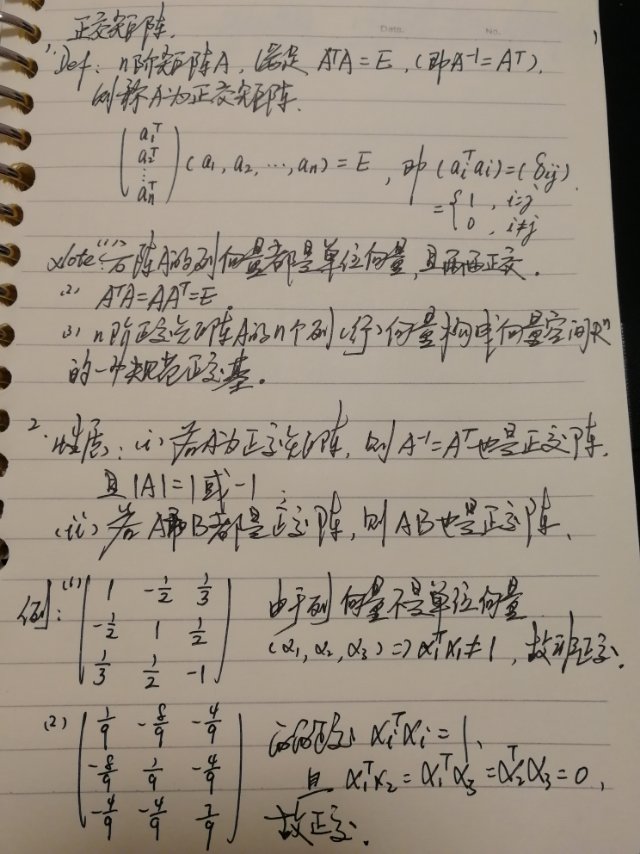 Date. No.
正交矩阵.
1. Def: n阶矩阵A, 满足 AᵀA = E, (即A⁻¹ = Aᵀ),
则称A为正交矩阵.
(a₁ᵀ a₂ᵀ ⋮ aₙᵀ) (a₁, a₂, ⋯, aₙ) = E, 即 (aᵢᵀaᵢ) = (δᵢⱼ).
= { 1, i=j
0, i≠j
Note: (1) 方阵A的列向量都是单位向量, 且两两正交.
(2) AᵀA = AAᵀ = E.
(3) n阶正交矩阵A的n个列(行)向量构成向量空间Rⁿ
的一个规范正交基.
2. 性质: (i) 若A为正交矩阵, 则A⁻¹ = Aᵀ也是正交阵.
且|A| = 1 或 -1;
(ii) 若A和B都是正交阵, 则AB也是正交阵.
例: (1) ( 1 -1/2 1/3 由于列向量不是单位向量
-1/2 1 1/2 (α₁, α₂, α₃) ⇒ α₁ᵀα₁ ≠ 1, 故非正交.
1/3 1/2 -1 )
(2) ( 1/9 -8/9 -4/9 αᵢᵀαᵢ = 1,
-8/9 1/9 -4/9 且 α₁ᵀα₂ = α₁ᵀα₃ = α₂ᵀα₃ = 0,
-4/9 -4/9 7/9 ) 故正交.